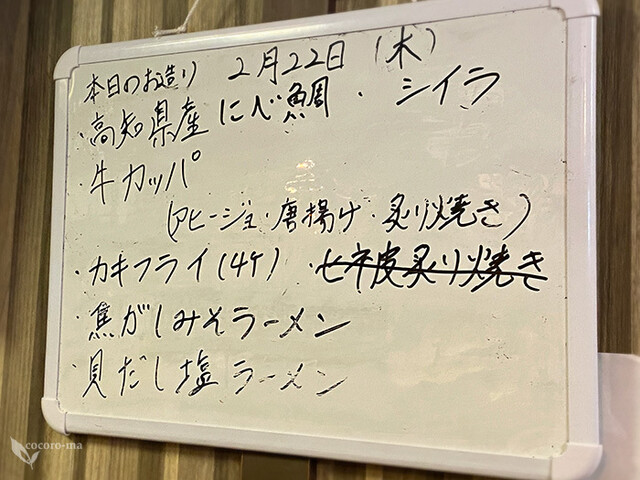 本日のお造り 2月22日(木)
・高知県産 にべ鯛・シイラ
・牛カッパ
(アヒージョ・唐揚げ・炙り焼き)
・カキフライ(4ケ) ・セネ皮炙り焼き
・焦がしみそラーメン
・貝だし塩ラーメン
cocoro-ma